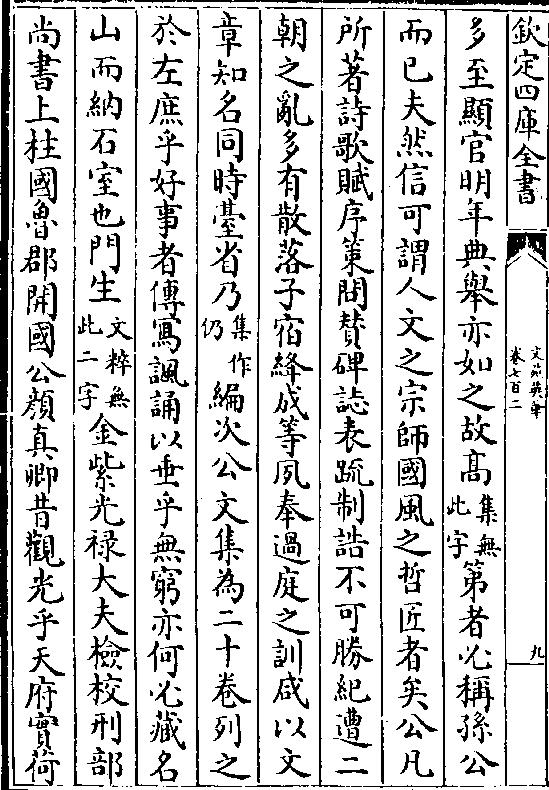 欽定四庫全書
文苑英華
卷七百二
九
多至顯官明年典舉亦如之故髙集無此字第者必稱孫公
而已夫然信可謂人文之宗師國風之哲匠者矣公凡
所著詩歌賦序策問贊碑誌表疏制誥不可勝紀遭二
朝之亂多有散落子宿絳成等夙奉過庭之訓咸以文
章知名同時臺省乃集作仍編次公文集為二十卷列之
於左庶乎好事者傳寫諷誦以垂乎無窮亦何必藏名
山而納石室也門生文粹無此二字金紫光禄大夫檢校刑部
尚書上柱國魯郡開國公顔真卿昔觀光乎天府實荷